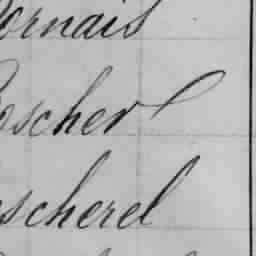 ornais
escher
scherel